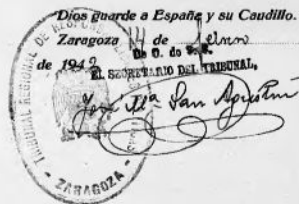 Dios guarde a España y su Caudillo.
Zaragoza 14 de Enero
de 1942
De O. de S. S.
EL SECRETARIO DEL TRIBUNAL,
José Mª San Agustín
TRIBUNAL REGIONAL DE
ZARAGOZA